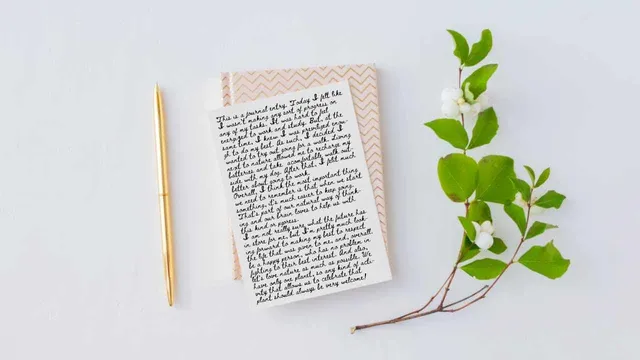 This is a journal entry. Today I felt like
I wasn't making any sort of progress on
any of my tasks. It was hard to feel
energized to work and study. But, at the
same time, I knew I was privileged enou-
gh to do my best. As such, I decided I
wanted to try out going for a walk. Living
next to nature allowed me to recharge my
batteries and take a comfortable walk out-
side with my dog. After that, I felt much
better about going to work.
Overall, I think the most important thing
we need to remember is that when we start
something, it's much easier to keep going.
That's part of our natural way of think-
ing and our brain loves to help us with
this kind of process.
I am not really sure what the future has
in store for me, but I'm pretty much look-
ing forward to making my best to respect
the life that was given to me, and, overall,
be a happy person, who has no problem in
fighting to their best interest. And also,
let's love nature as much as possible. We
have only one planet, so any kind of acti-
vity that allows us to celebrate that
planet should always be very welcome!